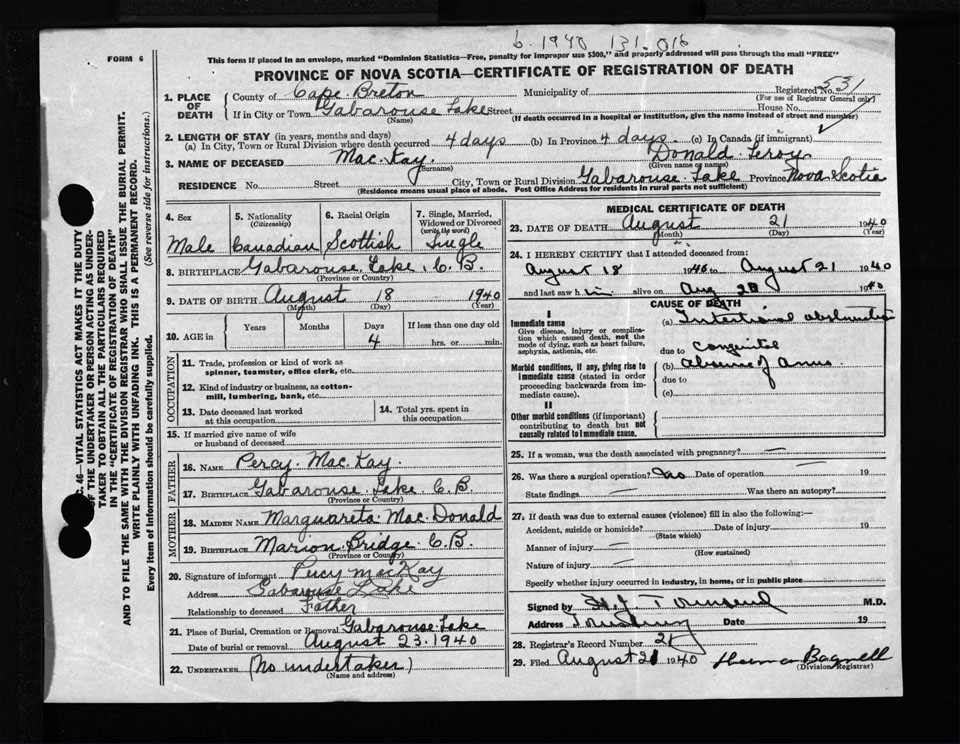 6. 1940 131.016
FORM 6
This form if placed in an envelope, marked "Dominion Statistics—Free, penalty for improper use $300," and properly addressed will pass through the mail "FREE"
PROVINCE OF NOVA SCOTIA—CERTIFICATE OF REGISTRATION OF DEATH
1. PLACE OF DEATH County of Cape Breton Municipality of Registered No. 531
(For use of Registrar General only)
If in City or Town Gabarouse Lake Street House No.
(Name) (If death occurred in a hospital or institution, give the name instead of street and number)
2. LENGTH OF STAY (in years, months and days)
(a) In City, Town or Rural Division where death occurred 4 days (b) In Province 4 days. (c) In Canada (if immigrant)
3. NAME OF DECEASED Mac.Kay. Donald Leroy
(Surname) (Given name or names)
RESIDENCE No. Street City, Town or Rural Division Gabarouse Lake Province Nova Scotia
(Residence means usual place of abode. Post Office Address for residents in rural parts not sufficient)
4. Sex 5. Nationality (Citizenship) 6. Racial Origin 7. Single, Married, Widowed or Divorced (write the word)
Male Canadian Scottish Single
8. BIRTHPLACE Gabarouse Lake, C.B.
(Province or Country)
9. DATE OF BIRTH August 18 1940
(Month) (Day) (Year)
10. AGE in Years Months Days If less than one day old
4 hrs. or min.
OCCUPATION
11. Trade, profession or kind of work as spinner, teamster, office clerk, etc.
12. Kind of industry or business, as cotton-mill, lumbering, bank, etc.
13. Date deceased last worked at this occupation
14. Total yrs. spent in this occupation
15. If married give name of wife or husband of deceased
FATHER
16. NAME Percy. Mac.Kay.
17. BIRTHPLACE Gabarouse Lake C.B.
(Province or Country)
MOTHER
18. MAIDEN NAME Marguareta Mac.Donald
19. BIRTHPLACE Marion Bridge C.B.
(Province or Country)
20. Signature of informant Percy MacKay
Address Gabarouse Lake
Relationship to deceased Father
21. Place of Burial, Cremation or Removal Gabarouse Lake
Date of burial or removal August 23. 1940
22. UNDERTAKER (No undertaker)
(Name and address)
MEDICAL CERTIFICATE OF DEATH
23. DATE OF DEATH August 21 1940
(Month) (Day) (Year)
24. I HEREBY CERTIFY that I attended deceased from:
August 18 1940 to August 21 1940
and last saw h im alive on Aug 1940
CAUSE OF DEATH
I
Immediate cause
Give disease, injury or complication which caused death, not the mode of dying, such as heart failure, asphyxia, asthenia, etc.
(a) Intestinal obstruction
due to Congenital
Morbid conditions, if any, giving rise to immediate cause (stated in order proceeding backwards from immediate cause).
(b) absence of Anus
due to
(c)
II
Other morbid conditions (if important) contributing to death but not causally related to immediate cause.
25. If a woman, was the death associated with pregnancy? —
26. Was there a surgical operation? No Date of operation — 19
State findings Was there an autopsy?
27. If death was due to external causes (violence) fill in also the following:—
Accident, suicide or homicide? Date of injury 19
(State which)
Manner of injury —
(How sustained)
Nature of injury —
Specify whether injury occurred in industry, in home, or in public place
Signed by Townsend M.D.
Address Louisburg Date 19
28. Registrar's Record Number 21
29. Filed August 21 1940 Bagnell
(Division Registrar)
C. 46—VITAL STATISTICS ACT MAKES IT THE DUTY
OF THE UNDERTAKER OR PERSON ACTING AS UNDER-
TAKER TO OBTAIN ALL THE PARTICULARS REQUIRED
IN THE "CERTIFICATE OF REGISTRATION OF DEATH"
AND TO FILE THE SAME WITH THE DIVISION REGISTRAR WHO SHALL ISSUE THE BURIAL PERMIT.
WRITE PLAINLY WITH UNFADING INK. THIS IS A PERMANENT RECORD.
Every item of information should be carefully supplied. (See reverse side for instructions.)